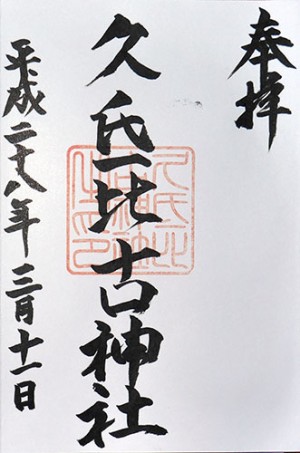 奉拝
久氐比古神社
平成二十八年三月十一日